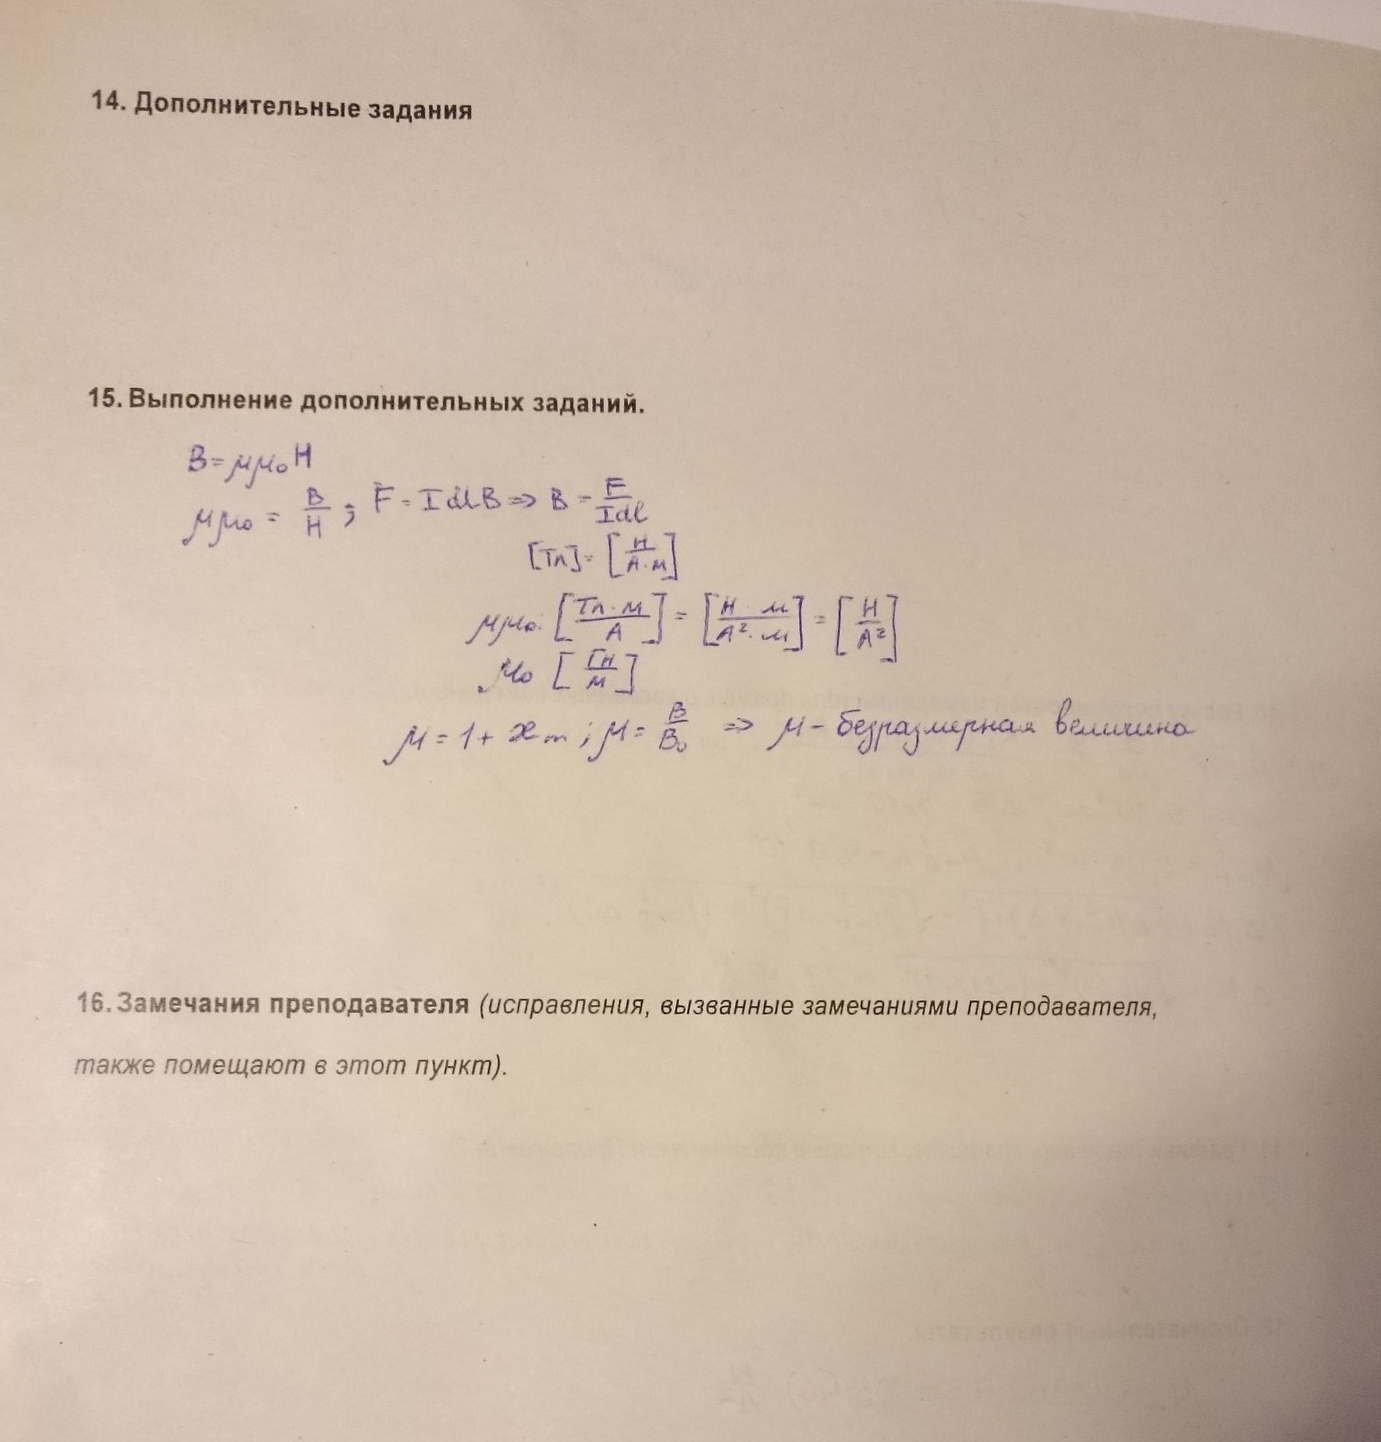 14. Дополнительные задания
15. Выполнение дополнительных заданий.
B = μμ₀H
μμ₀ = B/H ; F = IdlB ⇒ B = F/Idl
[Тл] = [Н/А·м]
μμ₀: [Тл·м/А] = [Н·м/А²·м] = [Н/А²]
μ₀ [Гн/м]
μ = 1 + æₘ ; μ = B/B₀ ⇒ μ – безразмерная величина
16. Замечания преподавателя (исправления, вызванные замечаниями преподавателя,
также помещают в этот пункт).